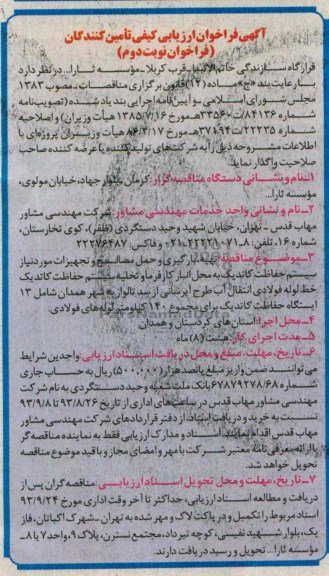 آگهی فراخوان ارزیابی کیفی تأمین‌کنندگان
(فراخوان نوبت دوم)
قرارگاه سازندگی خاتم‌الانبیاء-قرب کربلا-مؤسسه ثارا... در نظر دارد
با رعایت بند «ج» ماده (۱۲) قانون برگزاری مناقصات-مصوب ۱۳۸۳
مجلس شورای اسلامی و آیین‌نامه اجرایی بند یاد شده (تصویب‌نامه
شماره ۸۴۱۳۶/ت۳۳۵۶۰هـ مورخ ۱۳۸۵/۷/۱۶ هیأت وزیران) و اصلاحیه
شماره ۲۲۲۳۵/ت۳۷۱۹۴هـ مورخ ۸۶/۳/۱۷ هیأت وزیران پروژه‌ای با
اطلاعات مشروحه ذیل را به شرکت‌های تولیدکننده یا عرضه کننده صاحب
صلاحیت واگذار نماید.
۱-نام و نشانی دستگاه مناقصه گزار: کرمان، بلوار جهاد، خیابان مولوی،
مؤسسه ثارا...
۲-نام و نشانی واحد خدمات مهندسی مشاور: شرکت مهندسی مشاور
مهاب قدس-تهران، خیابان شهید وحید دستگردی (ظفر)، کوی تخارستان،
شماره ۱۶، تلفن: ۸-۲۲۲۳۱۰۷۱-۰۲۱ و فاکس: ۲۲۲۷۶۴۸۷
۳-موضوع مناقصه: تهیه، بارگیری و حمل مصالح و تجهیزات مورد نیاز
سیستم حفاظت کاتدیک به محل انبار کارفرما و تخلیه سیستم حفاظت کاتدیک
خط لوله فولادی انتقال آب طرح آبرسانی از سد تالوار به شهر همدان شامل ۱۳
ایستگاه حفاظت کاتدیک برای مجموع ۱۴۰ کیلومتر لوله‌های فولادی.
۴-محل اجرا: استان‌های کردستان و همدان
۵-مدت اجرای کار: هشت (۸) ماه
۶-تاریخ، مهلت، مبلغ و محل دریافت اسناد ارزیابی: واجدین شرایط
می‌توانند ضمن واریز مبلغ پانصد هزار (۵۰۰،۰۰۰) ریال به حساب جاری
شماره ۶۷۸۷۹۲۷۸/۶۸ بانک ملت شعبه وحید دستگردی به نام شرکت
مهندسی مشاور مهاب قدس در ساعت‌های اداری از تاریخ ۹۳/۸/۲۶ تا ۹۳/۹/۸
نسبت به خرید و دریافت اسناد، از دفتر قراردادهای شرکت مهندسی مشاور
مهاب قدس اقدام نمایند. اسناد و مدارک ارزیابی فقط به نماینده مناقصه گر
با ارائه معرفی‌نامه معتبر شرکت با مهر و امضای مجاز و با قید موضوع مناقصه
تحویل خواهد شد.
۷-تاریخ، مهلت و محل تحویل اسناد ارزیابی: مناقصه گران پس از
دریافت و مطالعه اسناد ارزیابی، حداکثر تا آخر وقت اداری مورخ ۹۳/۹/۲۴
اسناد مربوط را تکمیل و در پاکت لاک و مهر شده به تهران-شهرک اکباتان، فاز
یک، بلوار شهید نفیسی، کوچه تیرداد، مجتمع نسترن، پلاک ۹، واحد ۷ یا ۸-
مؤسسه ثارا... تحویل و رسید دریافت دارند.